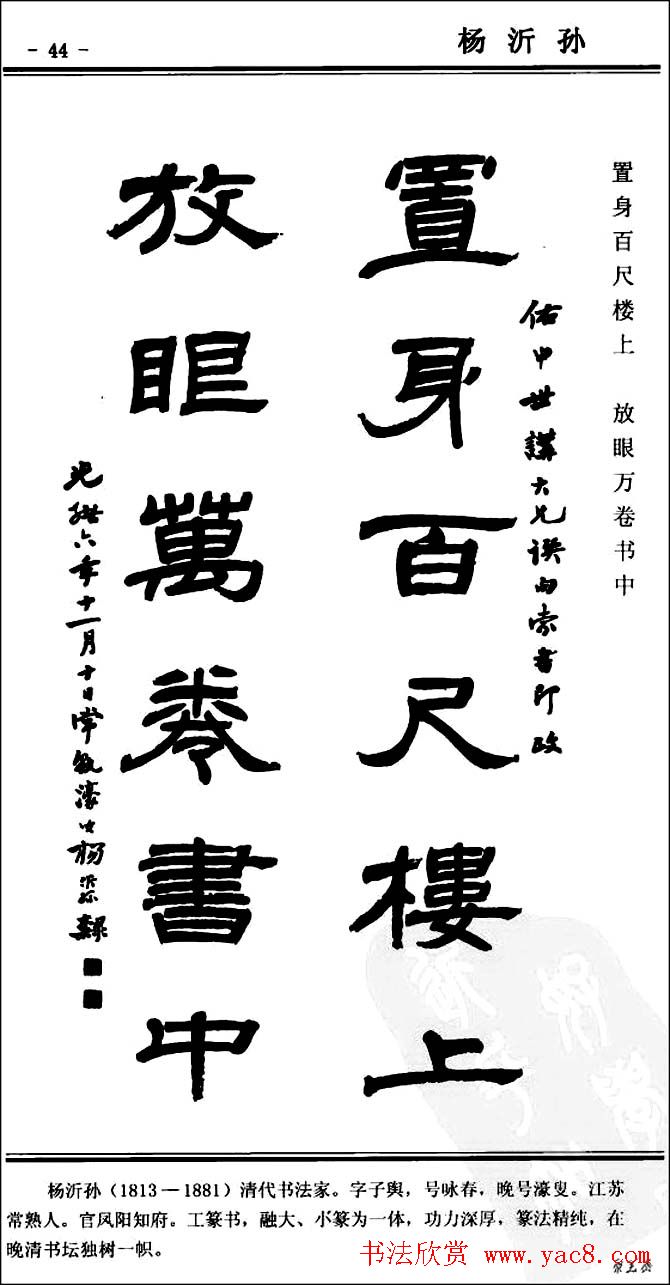 - 44 -
杨沂孙
置身百尺楼上 放眼万卷书中
佑申世講大兄誤多索書即政
置身百尺樓上
放眼萬卷書中
光緒六年十一月十日常熟濠叟楊沂孫隸
杨沂孙（1813—1881）清代书法家。字子舆，号咏春，晚号濠叟。江苏
常熟人。官凤阳知府。工篆书，融大、小篆为一体，功力深厚，篆法精纯，在
晚清书坛独树一帜。
书法欣赏 www.yac8.com